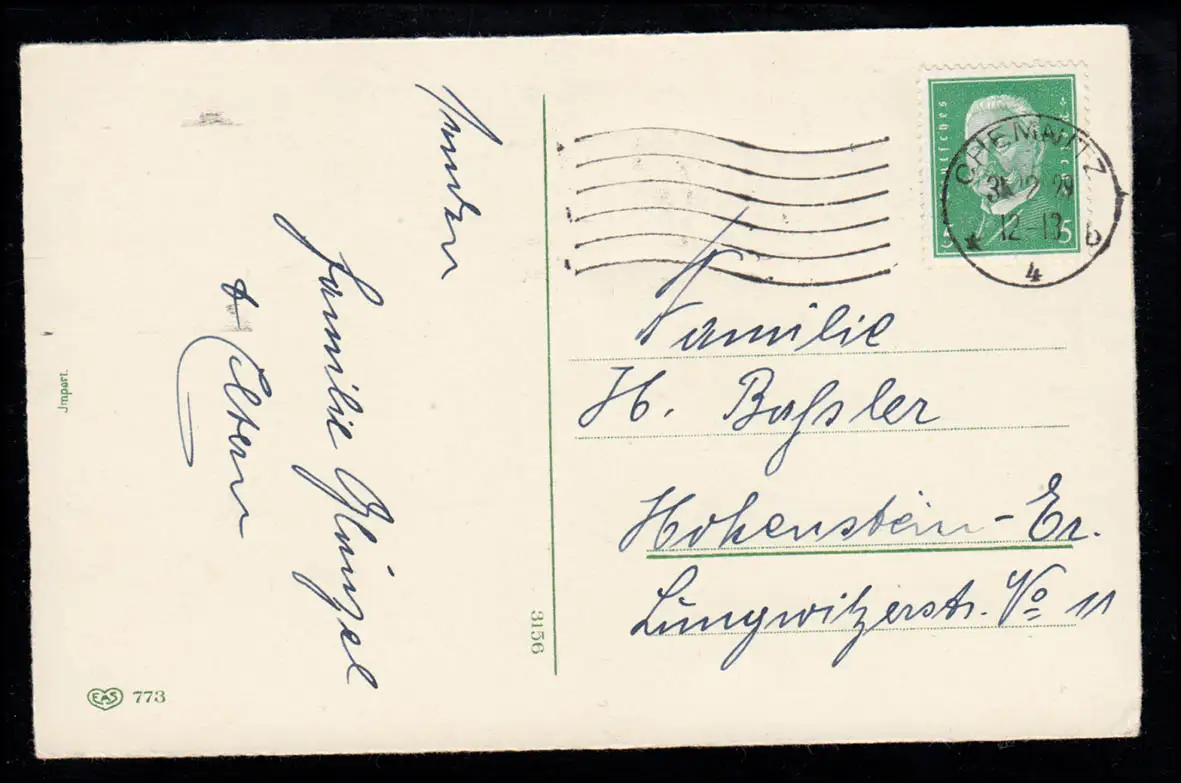 senden
Familie Glänzel
& Eltern
Jmport.
EAS 773
3156
DEUTSCHES
5 5
CHEMNITZ
31.12.29
12-13
* 4 b
Familie
H. Baßler
Hohenstein-Er.
Lungwitzerstr. No 11